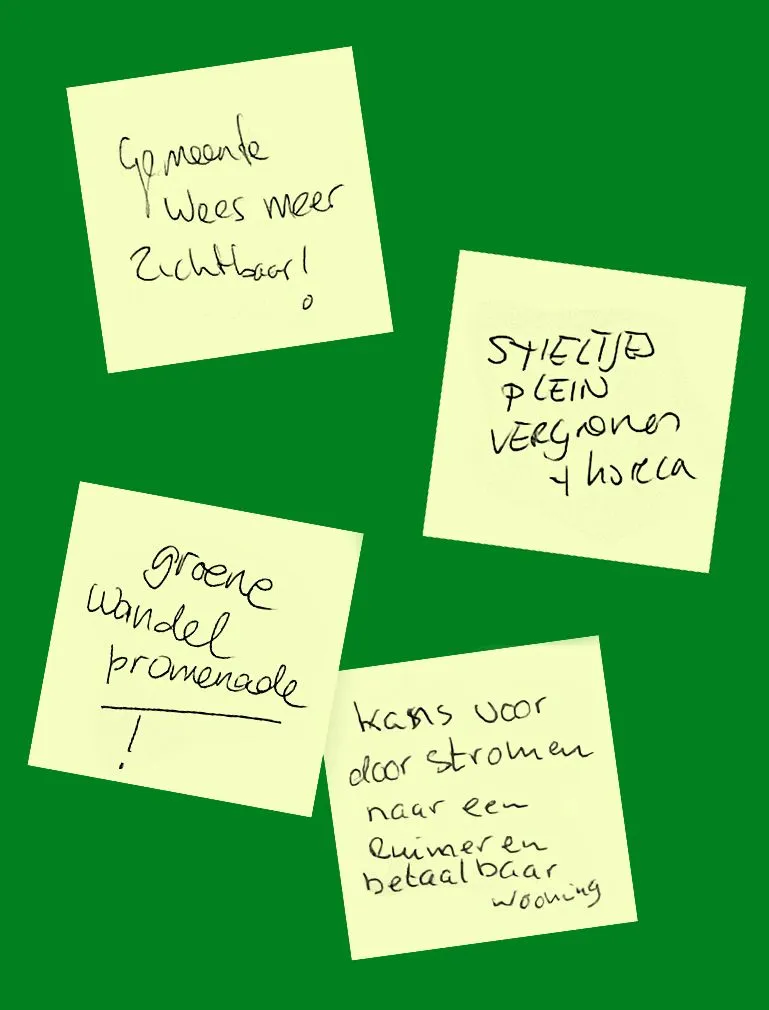 Gemeente
wees meer
zichtbaar!
STIELTJES
PLEIN
VERGroNen
+ horeca
groene
wandel
promenade
!
kans voor
door stromen
naar een
Ruimer en
betaalbaar
wooning